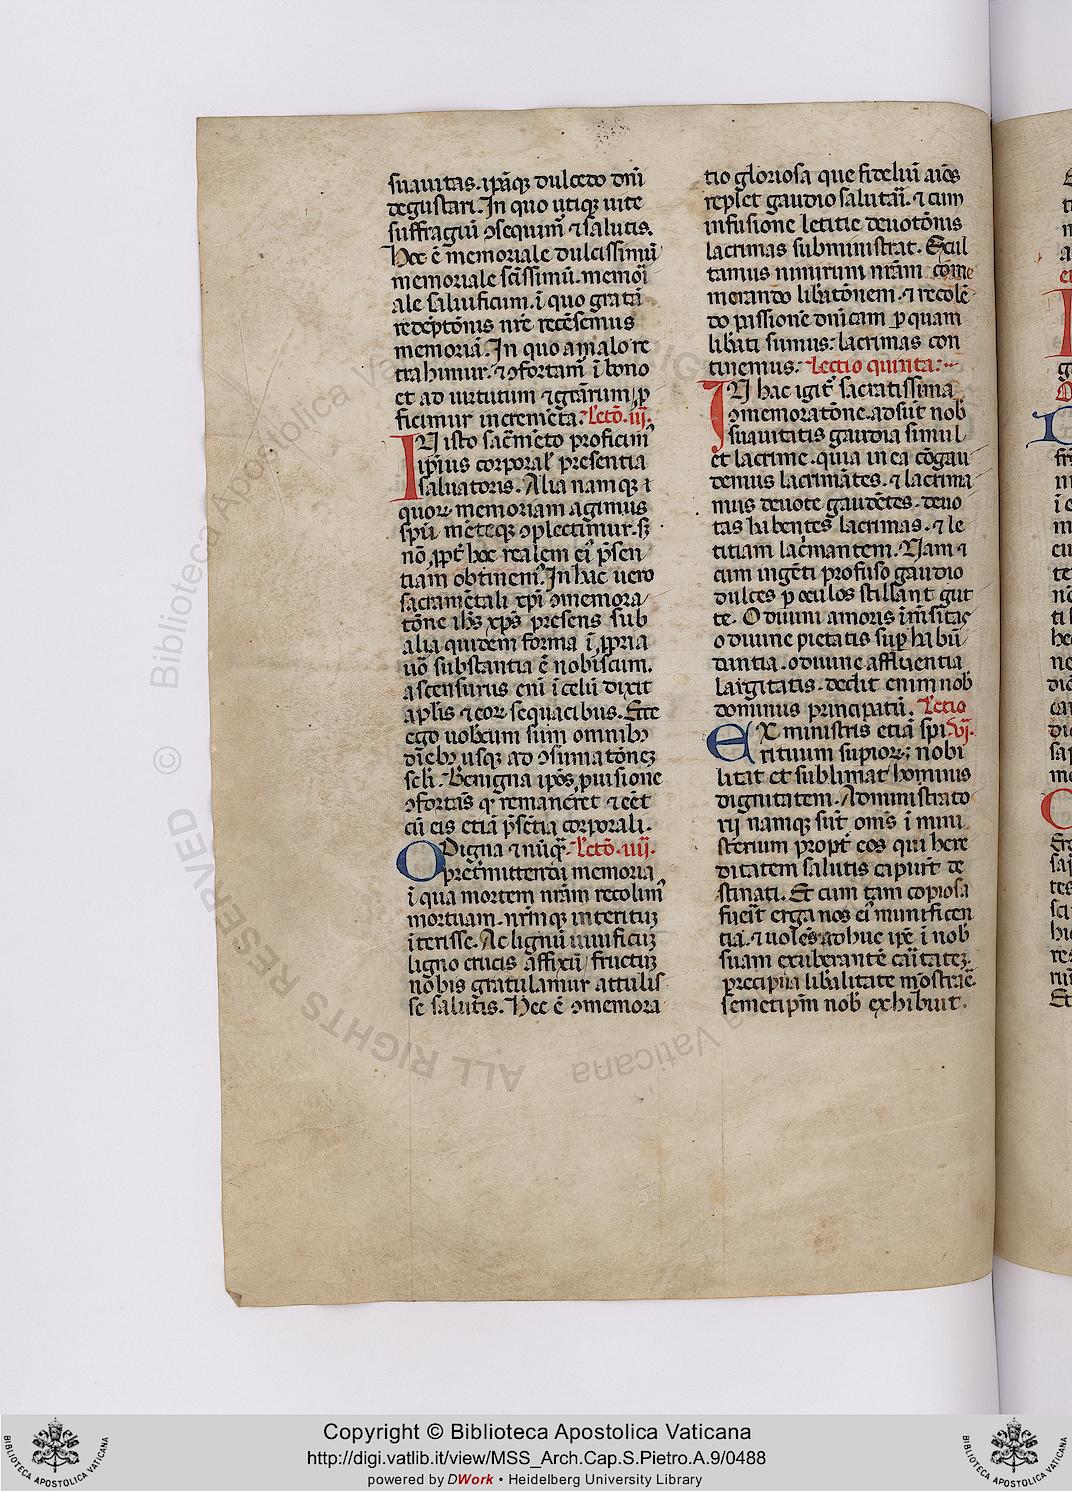 suauitas. ipãq; dulcedo dñi
degustari. In quo utiq; uite
suffragiũ ꝯsequim̃ ⁊ salutis.
Hec ẽ memoriale dulcissimũ
memoriale sc̃issimũ. memor̃i
ale saluificum. ĩ quo gratã
redẽptõnis nr̃e recẽsemus
memoriã. In quo a malo re
trahimur. ⁊ ꝯfortam̃ ĩ bono
et ad uirtutum ⁊ gr̃arum ꝓ
ficimur incremẽta. Lectõ. iij.
IN isto sac̃meto proficim̃
ip̃ius corporal' presentia
saluatoris. Alia namq; i
quoꝝ memoriam agimus
sp̃u mẽteq; ꝯplectimur. sꝫ
nõ ꝓpt̃ hoc realem ei' p̃sen
tiam obtinem'. In hac uero
sacramẽtali xp̃i ꝯmemora
tõne ih̃s xp̃s presens sub
alia quidem forma ĩ ꝓpria
uõ substantia ẽ nobiscum.
ascensurus eni ĩ celũ dixit
ap̃lis ⁊ eoꝝ sequacibus. Ecce
ego uobcum sum omnibꝫ
diẽbꝫ usq; ad ꝯsumatõneꝫ
sc̃li. Benigna ip̃os ꝓuisione
ꝯfortãs qꝛ remaneret ⁊ eẽt
cũ eis etiã p̃sẽtia corporali.
O Digna ⁊ nũq̃. Lectõ. iiij.
pretmittenda memoria
ĩ qua mortem nr̃am recolim'
mortuam. nr̃mq; interituꝫ
ĩterisse. Ac lignũ uiuificuꝫ
ligno crucis affixũ fructuꝫ
nobis gratulamur attulis
se salutis. Hec ẽ ꝯmemora
tio gloriosa que fideliũ aĩos
replet gaudio salutari. ⁊ cum
infusione letitie deuotõnis
lacrimas subministrat. Exul
tamus nimirum nr̃am come
morando lib̃atõnem. ⁊ recolẽ
do passionẽ dñicam ꝑ quam
lib̃ati sumus: lacrimas con
tinemus. Lectio quinta.
IN hac igit̃ sacratissima
ꝯmemoratõne. adsũt nob̃
suauitatis gaudia simul
et lacrime. quia in ea cõgau
demus lacrimãtes. ⁊ lacrima
mus deuote gaudẽtes. deuo
tas habentes lacrimas. ⁊ le
titiam lac̃mantem. Nam ⁊
cum ingẽti profuso gaudio
dulces ꝑ oculos stillant gut
te. O diuini amoris ĩmẽsitas
o diuine pietatis suꝑhabũ
dantia. o diuine affluentia
largitatis. dedit enim nob̃
dominus principatũ. Lectio
EX ministris etiã spi .vi.
rituum supioꝝ; nobi
litat et sublimat hominis
dignitatem. Administrato
rij namq; sũt om̃s ĩ mini
sterium propt̃ eos qui here
ditatem salutis capiũt de
stinati. Et cum tam copiosa
fuerit erga nos ei' munificen
tia. ⁊ uolẽs adhuc ip̃e ĩ nob̃
suam exuberantẽ caritateꝫ.
precipua lib̃alitate mõstrare
semetip̃m nob̃ exhibuit.
© Biblioteca Apostolica Vaticana
ALL RIGHTS RESERVED
Copyright © Biblioteca Apostolica Vaticana
http://digi.vatlib.it/view/MSS_Arch.Cap.S.Pietro.A.9/0488
powered by DWork • Heidelberg University Library
BIBLIOTECA APOSTOLICA VATICANA
BIBLIOTECA APOSTOLICA VATICANA